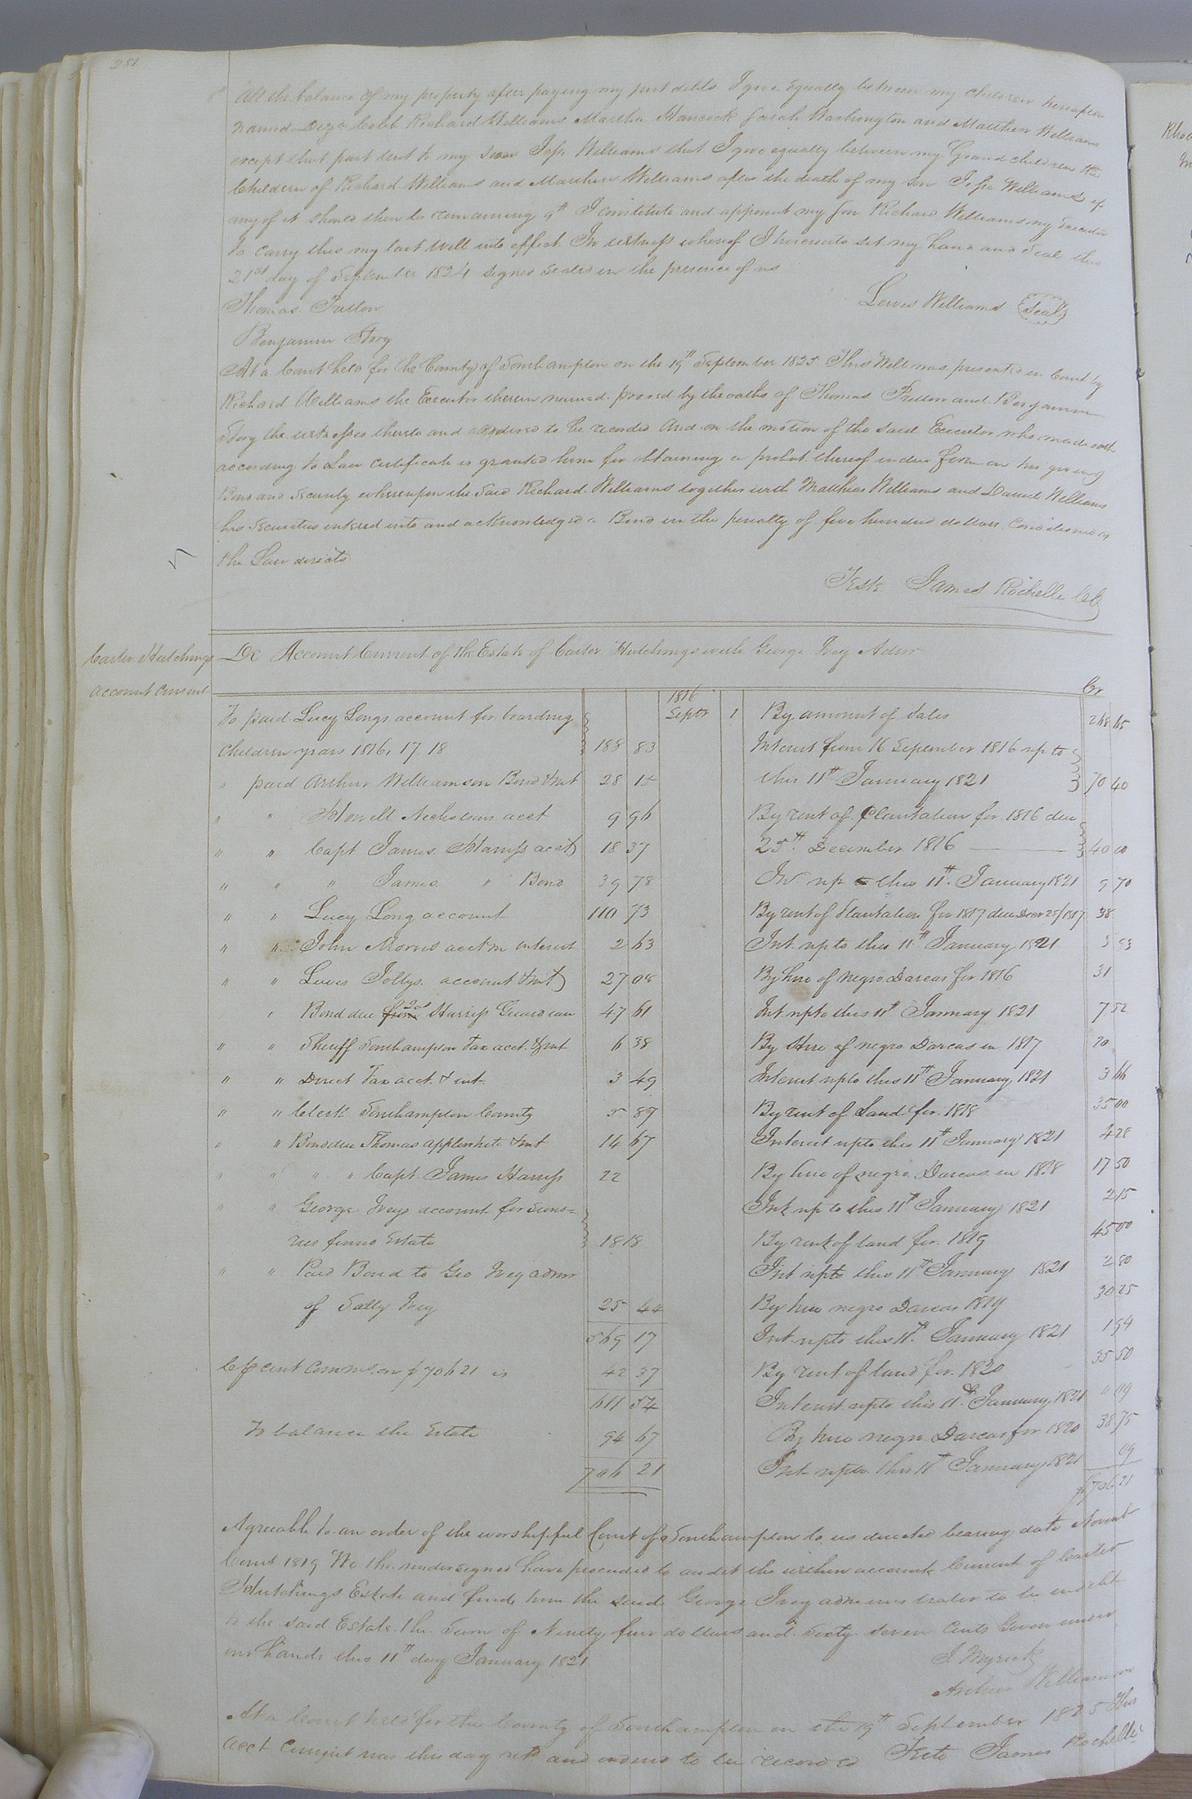 281
8th All the balance of my property after paying my just debts I give equally between my children hereafter
named Richard Williams Martha Hancock Sarah Washington and Matthew Williams
except that part lent to my son Williams that I give equally between my Grand children the
Children of Richard Williams and Matthew Williams after the death of my son Williams if
any of it should then be remaining 9th I constitute and appoint my son Richard Williams my Executor
to carry this my last will into effect In witness whereof I hereunto set my hand and seal this
21st day of September 1824 signed sealed in the presence of us
Lewis Williams (Seal)
Thomas Pretlow
Benjamin Ivey
At a Court held for the County of Southampton on the 19th September 1825 This Will was presented in Court by
Richard Williams the Executor therein named proved by the oaths of Thomas Pretlow and Benjamin
the witnesses thereto and ordered to be recorded And on the motion of the said Executor who made oath
according to Law certificate is granted him for obtaining a probat thereof in due form on his giving
Bond and Security whereupon the said Richard Williams together with Matthew Williams and Daniel Williams
his Securities entered into and acknowledged a Bond in the penalty of five hundred dollars Conditioned as
the Law directs
Teste James Rochelle Clk
Carter Hutchings
account current
Dr Account Current of the Estate of Carter Hutchings with George Ivey Admr
Cr
To paid Lucy Longs account for boarding
Children years 1816, 17 18 188 83
" paid Arthur Williamson Bond & int 28 15
" " Howell Nicholson acct 9 96
" " Capt James Harriss acct 18 37
" " " James " Bond 39 78
" " Lucy Long account 110 73
" " John Morris acct interest 2 63
" " Lewis Jollys account & int 27 08
" Bond due Harriss Guardian 47 61
" " Sheriff Southampton Tax acct & int 6 38
" " Direct Tax acct & int 3 49
" " Clerk Southampton County 5 89
" " Bond due Thomas Applewhite & int 14 67
" " " " Capt James Harriss 22
" " George Ivey account for
Estate 18 18
" " Paid Bond to Geo Ivey admr
of Sally Ivey 25 44
569 17
6 pr cent Comms on $706 21 is 42 37
611 54
To balance the Estate 94 67
706 21
1816
Septr 1 By amount of Sales 268 65
Interest from 16 September 1816 up to
this 11th January 1821 70 40
By rent of Plantation for 1816 due
25th December 1816 40 00
Int up to this 11th January 1821 9 70
By rent of Plantation for 1817 due Decr 25/1817 38
Int up to this 11th January 1821 5 83
By hire of negro Darcas for 1816 31
Int up to this 11th January 1821 7 52
By Hire of negro Darcas in 1817 20
Interest up to this 11th January 1821 3 66
By rent of Land for 1818 35 00
Interest up to this 11th January 1821 4 28
By hire of negro Darcas in 1828 17 50
Int up to this 11th January 1821 2 15
By rent of land for 1819 45 00
Int up to this 11th January 1821 2 80
By hire negro Darcas 1819 30 25
Int up to this 11th January 1821 1 94
By rent of land for 1820 35 50
Interest up to this 11th January 1821 " 09
By hire negro Darcas for 1820 38 75
Int up to this 11th January 1821 09
$706 21
Agreeable to an order of the worshipful Court of Southampton to us directed bearing date Novmr
Court 1819 We the undersigned have proceeded to audit the within account Current of Carter
Hutchings Estate and find from the said George Ivey administrator to be indebt
to the said Estate the Sum of Ninety four dollars and Sixty Seven Cents Given under
our hands this 11th day January 1821
J. Myrick
Arthur Williamson
At a Court held for the County of Southampton on the 19th September 1825 This
acct Current was this day retd and ordered to be recorded Teste James Rochelle